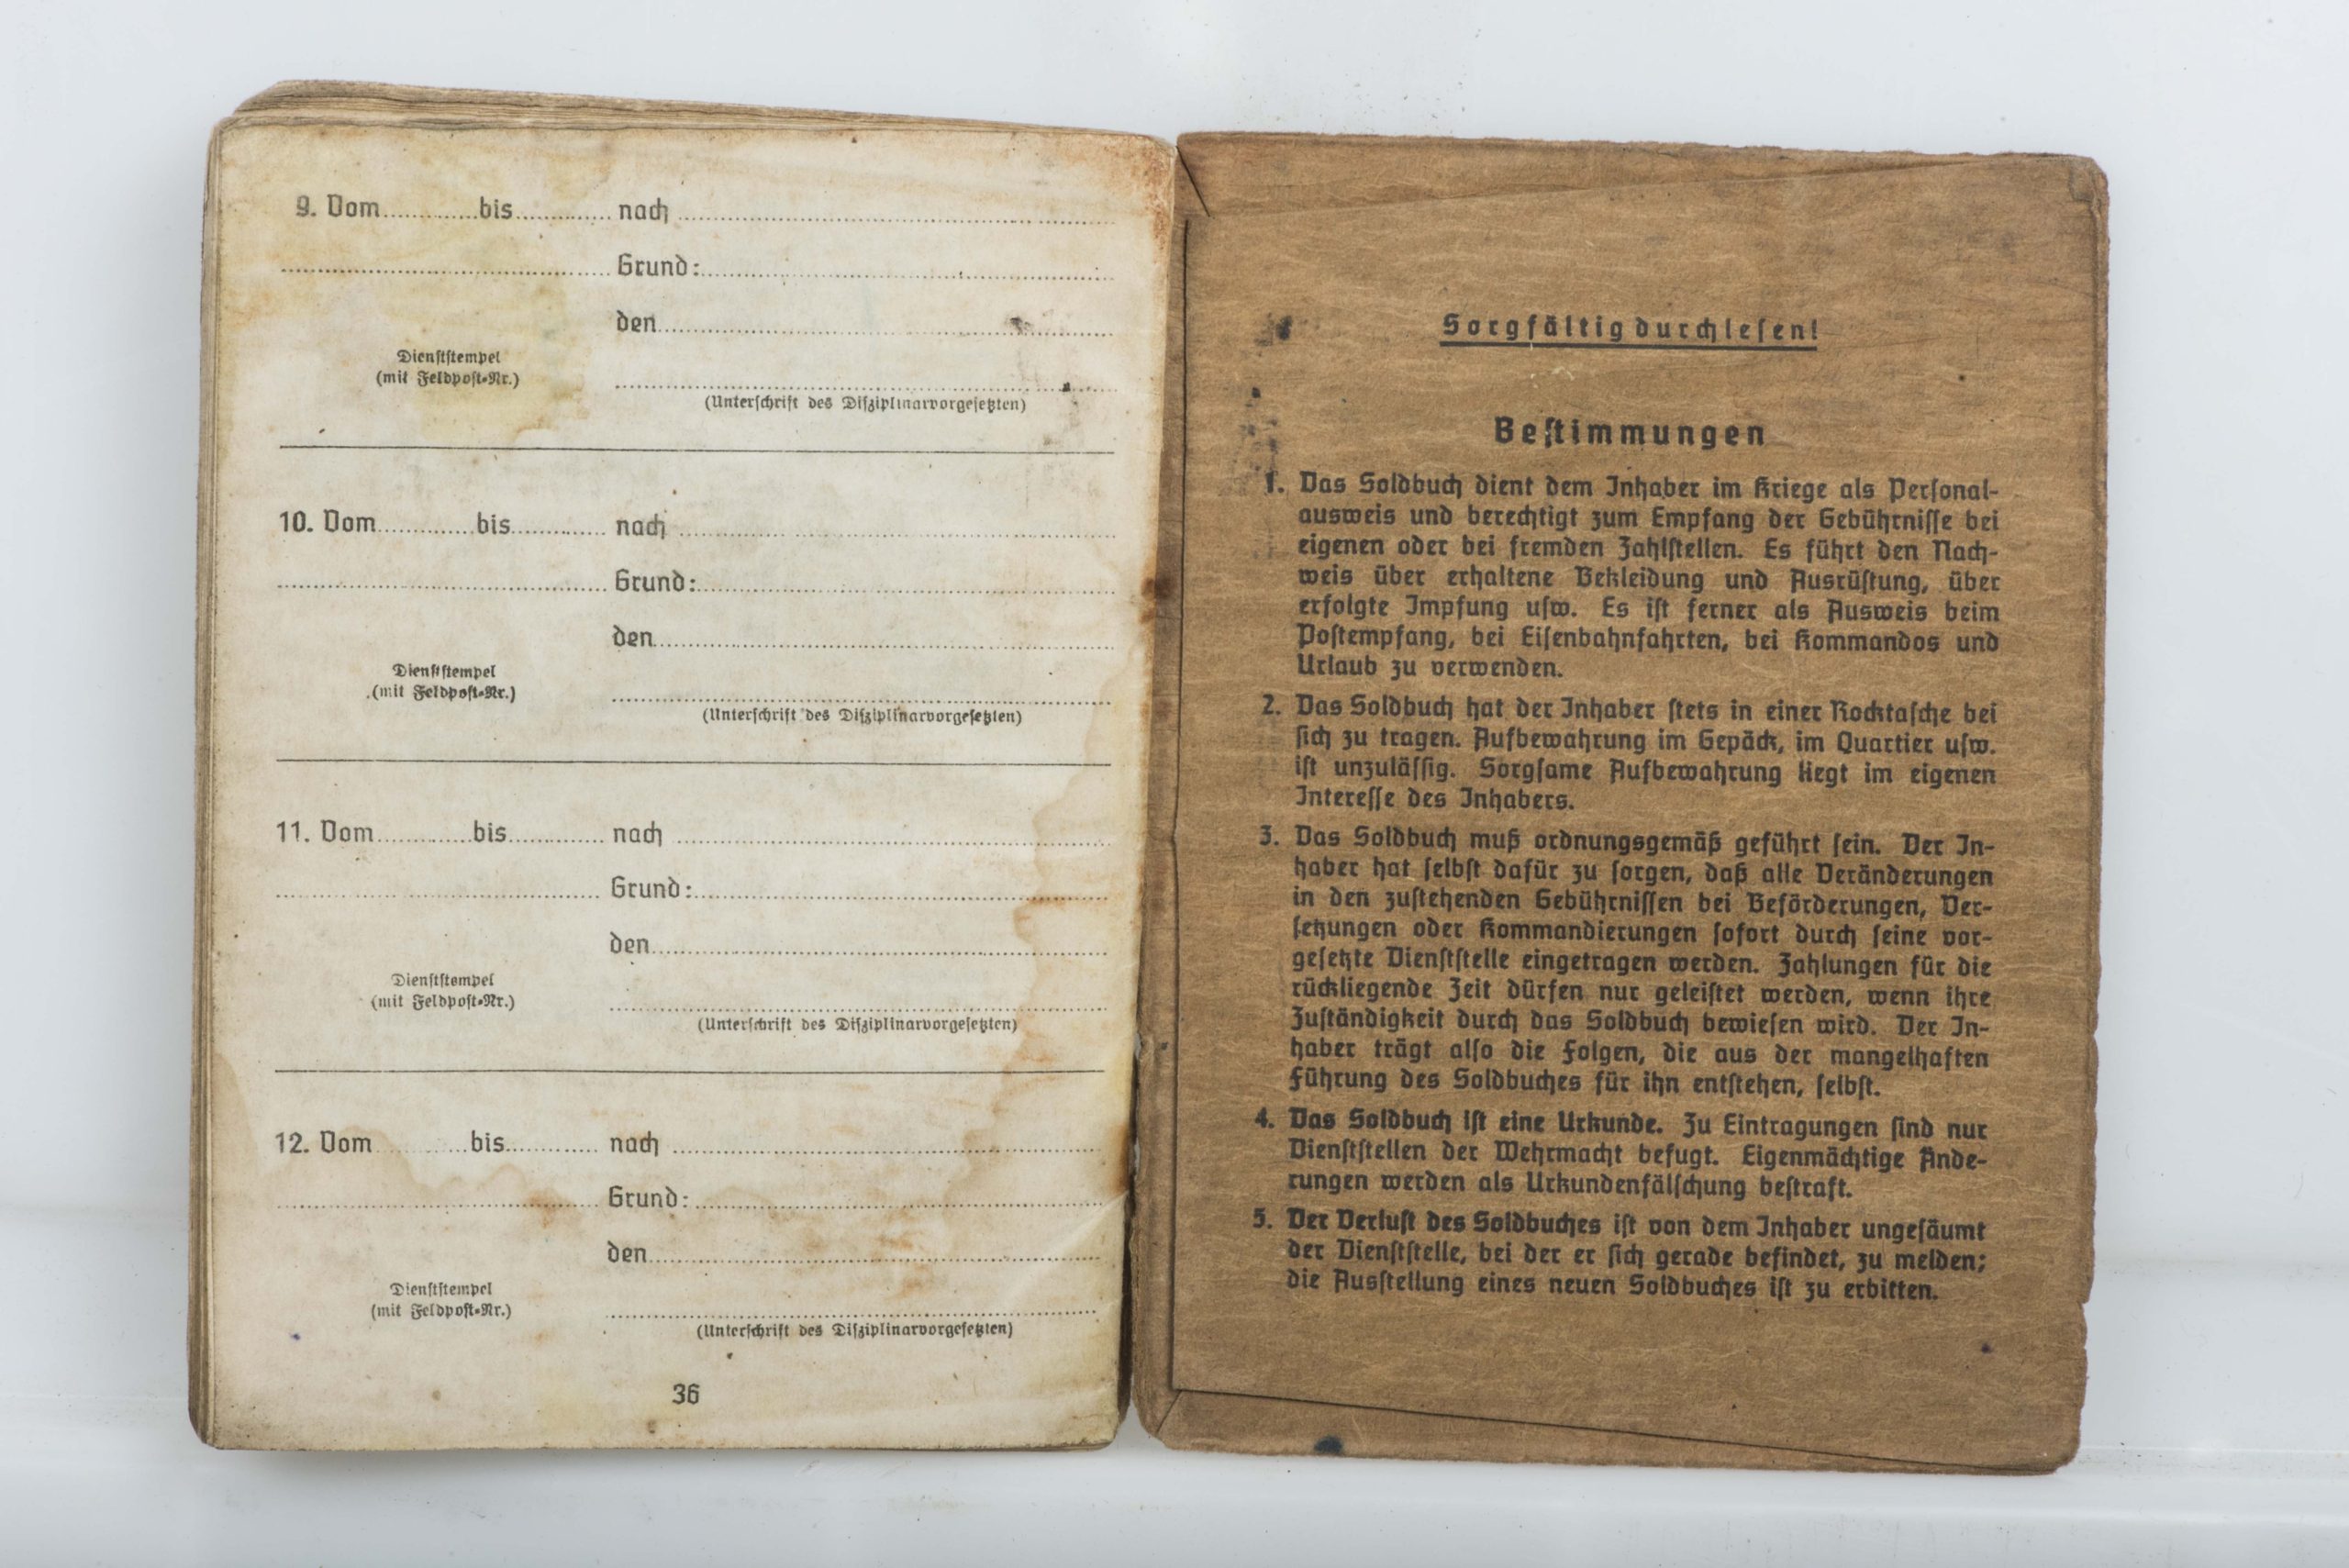 9. Vom.............bis.............. nach
Grund:
den
Dienststempel
(mit Feldpost-Nr.)
(Unterschrift des Disziplinarvorgesetzten)
10. Vom.............bis.............. nach
Grund:
den
Dienststempel
(mit Feldpost-Nr.)
(Unterschrift des Disziplinarvorgesetzten)
11. Vom.............bis.............. nach
Grund:
den
Dienststempel
(mit Feldpost-Nr.)
(Unterschrift des Disziplinarvorgesetzten)
12. Vom.............bis.............. nach
Grund:
den
Dienststempel
(mit Feldpost-Nr.)
(Unterschrift des Disziplinarvorgesetzten)
36
Sorgfältig durchlesen!
Bestimmungen
1. Das Soldbuch dient dem Inhaber im Kriege als Personal-
ausweis und berechtigt zum Empfang der Gebührnisse bei
eigenen oder bei fremden Zahlstellen. Es führt den Nach-
weis über erhaltene Bekleidung und Ausrüstung, über
erfolgte Impfung usw. Es ist ferner als Ausweis beim
Postempfang, bei Eisenbahnfahrten, bei Kommandos und
Urlaub zu verwenden.
2. Das Soldbuch hat der Inhaber stets in einer Rocktasche bei
sich zu tragen. Aufbewahrung im Gepäck, im Quartier usw.
ist unzulässig. Sorgsame Aufbewahrung liegt im eigenen
Interesse des Inhabers.
3. Das Soldbuch muß ordnungsgemäß geführt sein. Der In-
haber hat selbst dafür zu sorgen, daß alle Veränderungen
in den zustehenden Gebührnissen bei Beförderungen, Ver-
setzungen oder Kommandierungen sofort durch seine vor-
gesetzte Dienststelle eingetragen werden. Zahlungen für die
rückliegende Zeit dürfen nur geleistet werden, wenn ihre
Zuständigkeit durch das Soldbuch bewiesen wird. Der In-
haber trägt also die Folgen, die aus der mangelhaften
Führung des Soldbuches für ihn entstehen, selbst.
4. Das Soldbuch ist eine Urkunde. Zu Eintragungen sind nur
Dienststellen der Wehrmacht befugt. Eigenmächtige Ände-
rungen werden als Urkundenfälschung bestraft.
5. Der Verlust des Soldbuches ist von dem Inhaber ungesäumt
der Dienststelle, bei der er sich gerade befindet, zu melden;
die Ausstellung eines neuen Soldbuches ist zu erbitten.